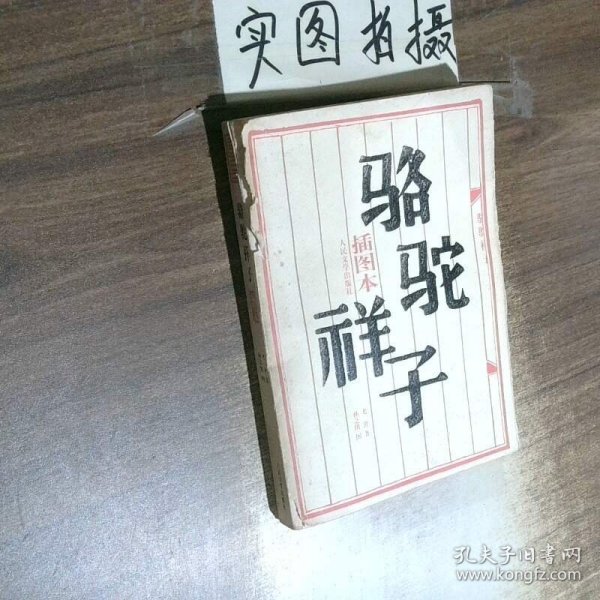 实图拍摄
骆驼
祥子
插图本
人民文学出版社
老舍著
孙之俊 图
孔夫子旧书网
www.kongfz.com